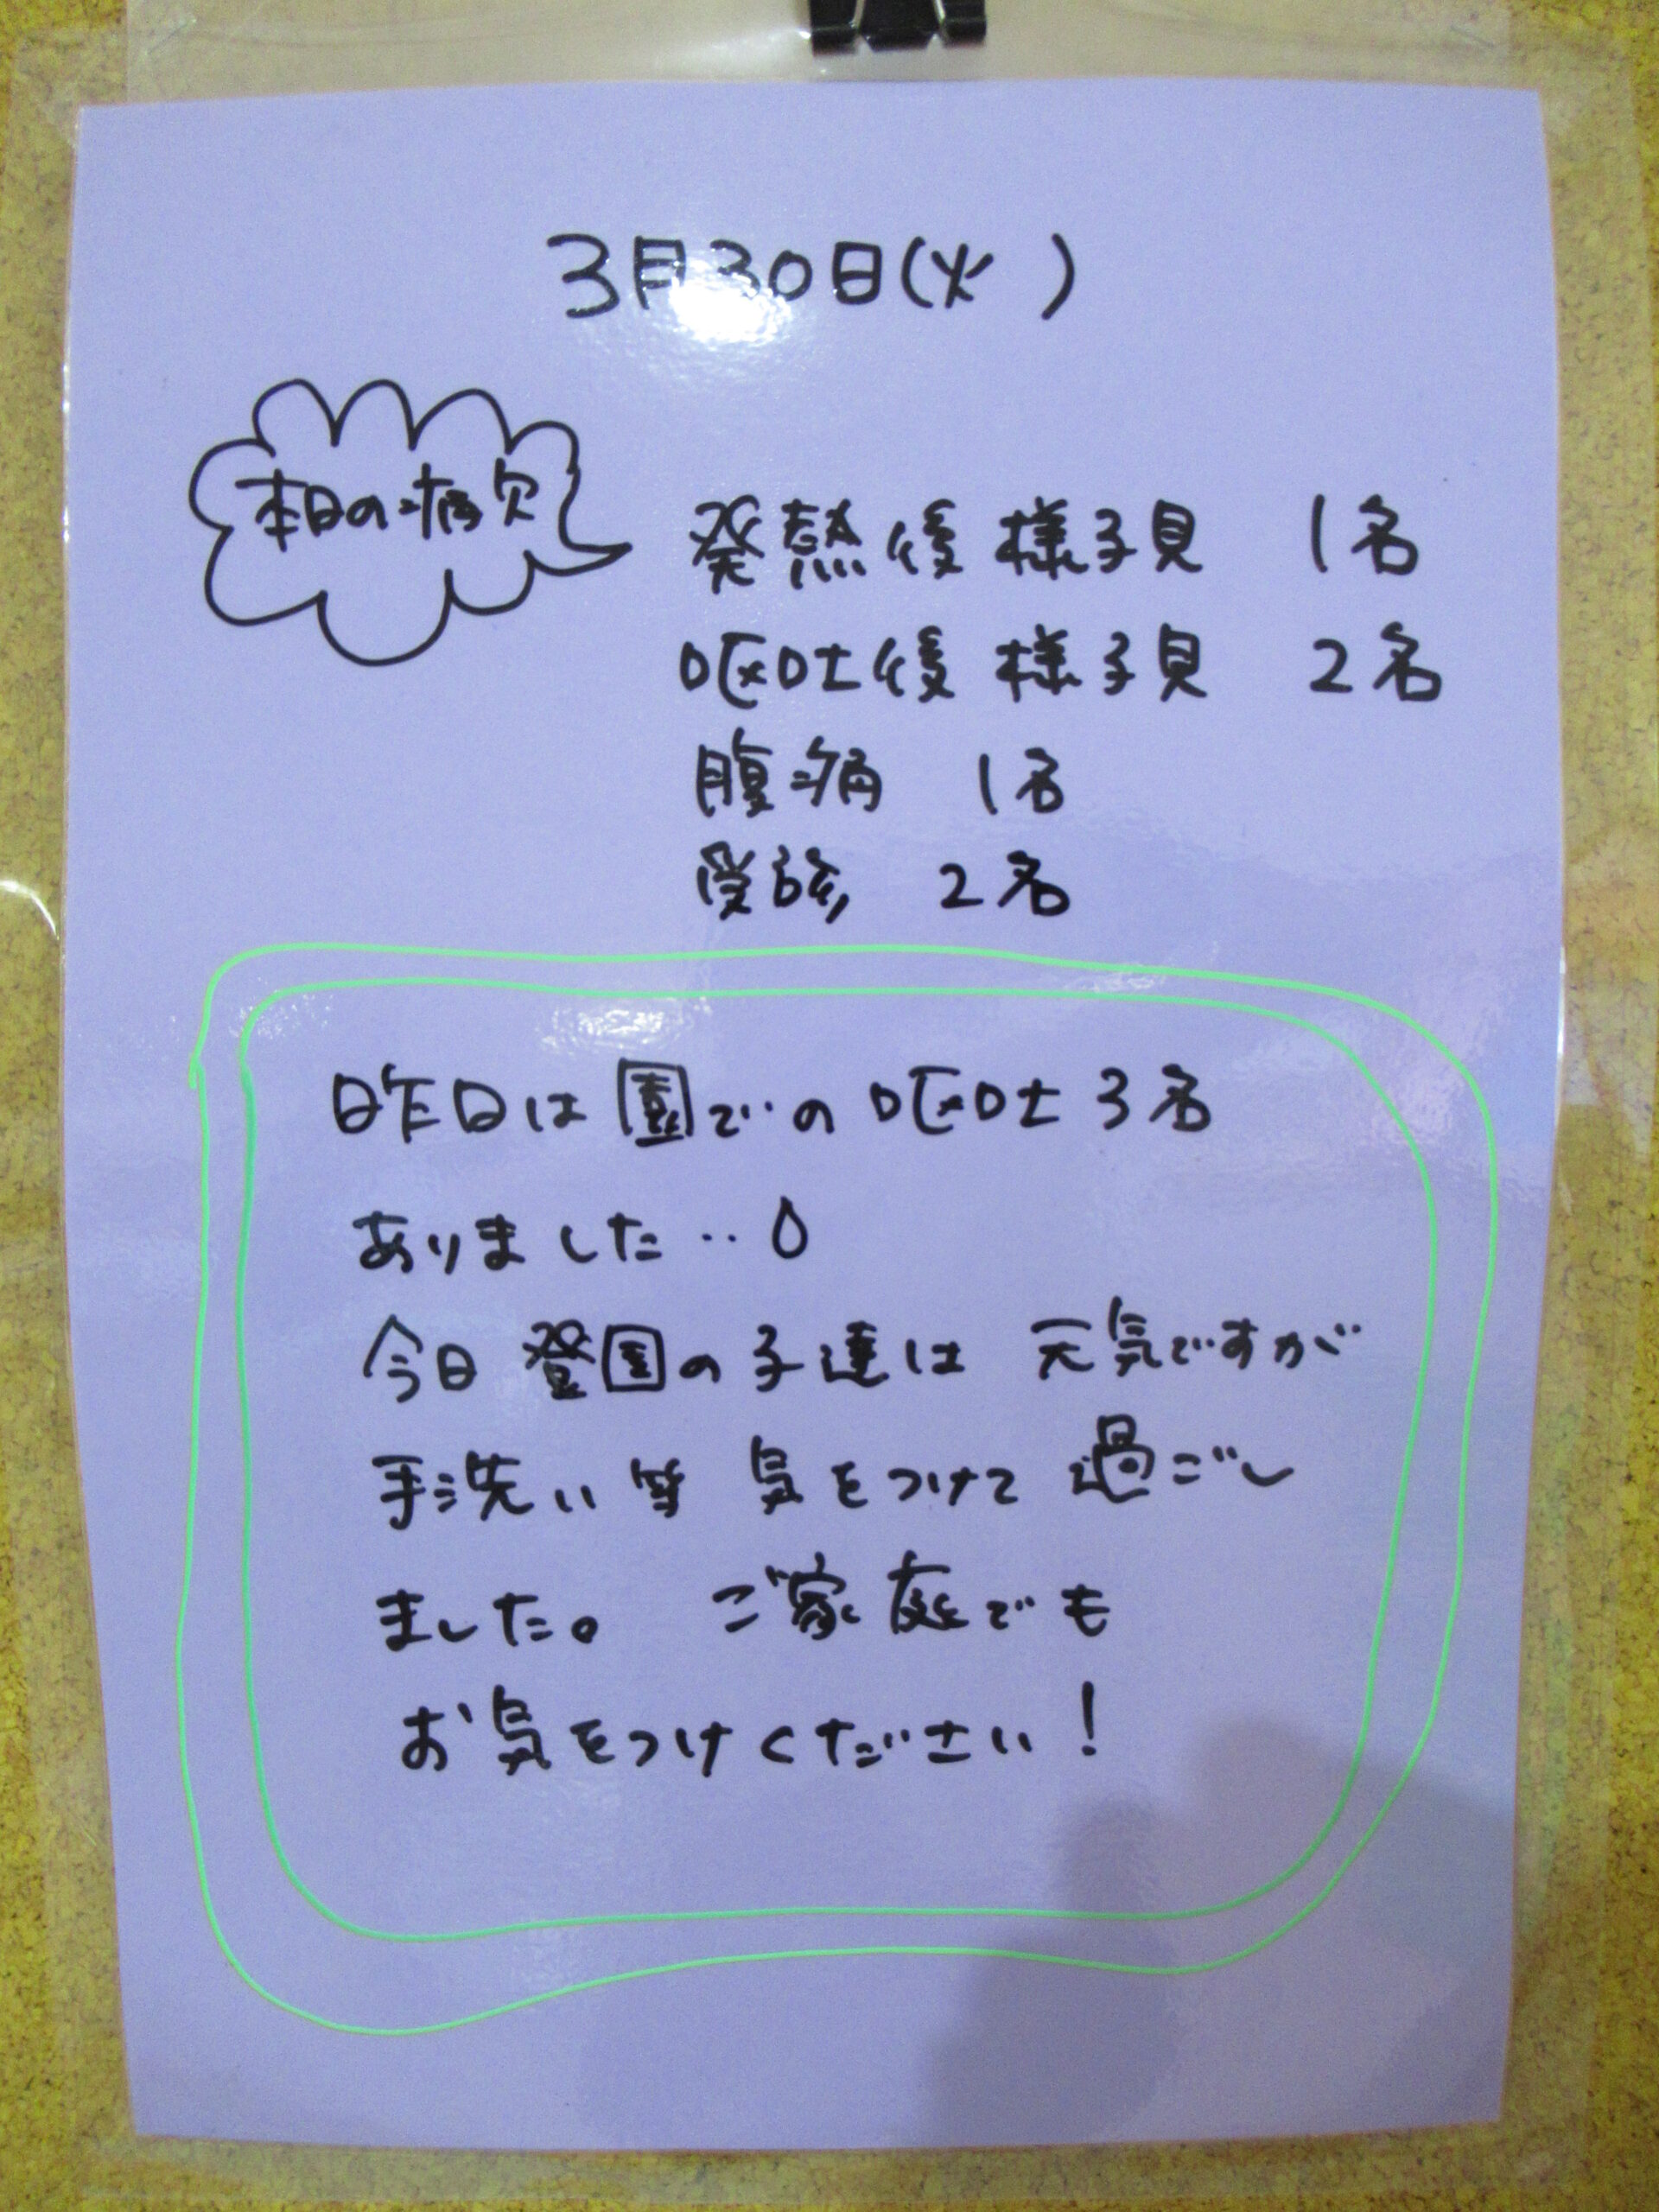 3月30日(火 )
本日の病欠
発熱後 様子見 1名
嘔吐後 様子見 2名
腹痛 1名
受診 2名
昨日は園での嘔吐3名
ありました‥
今日登園の子達は 元気ですが
手洗い等 気をつけて過ごし
ました。 ご家庭でも
お気をつけください!